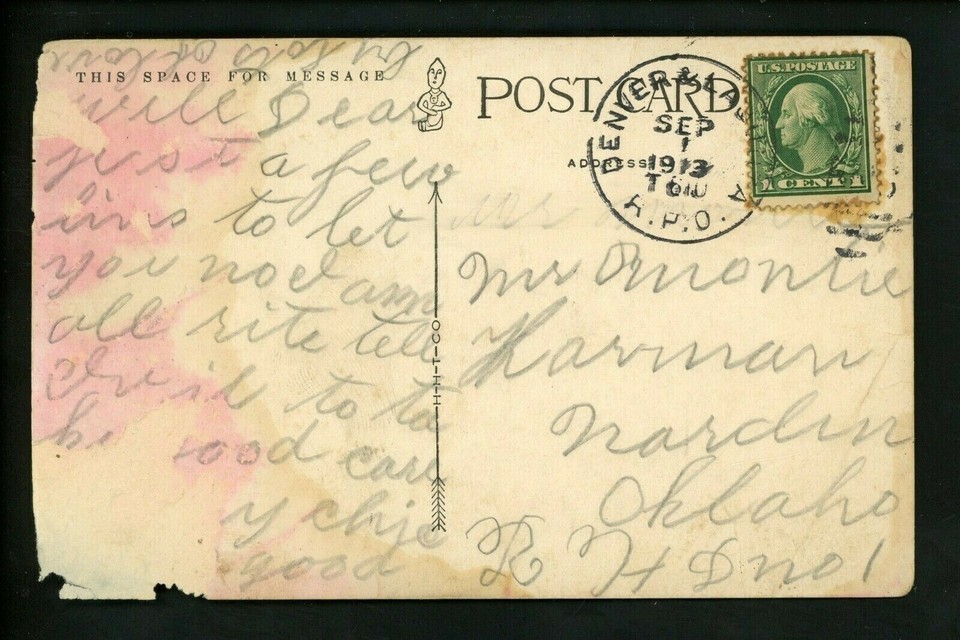 by
THIS SPACE FOR MESSAGE
will Dear
just a few
lins to let
you no I am
all rite tell
to ta
good care
y chije
good
H-H-T-CO
POST CARD
ADDRESS
DENVER &
SEP
1
1913
R.P.O.
U.S. POSTAGE
1 CENT 1
Mr
Mr Omonti
Harman
Nardin
Oklaho
R F D no 1